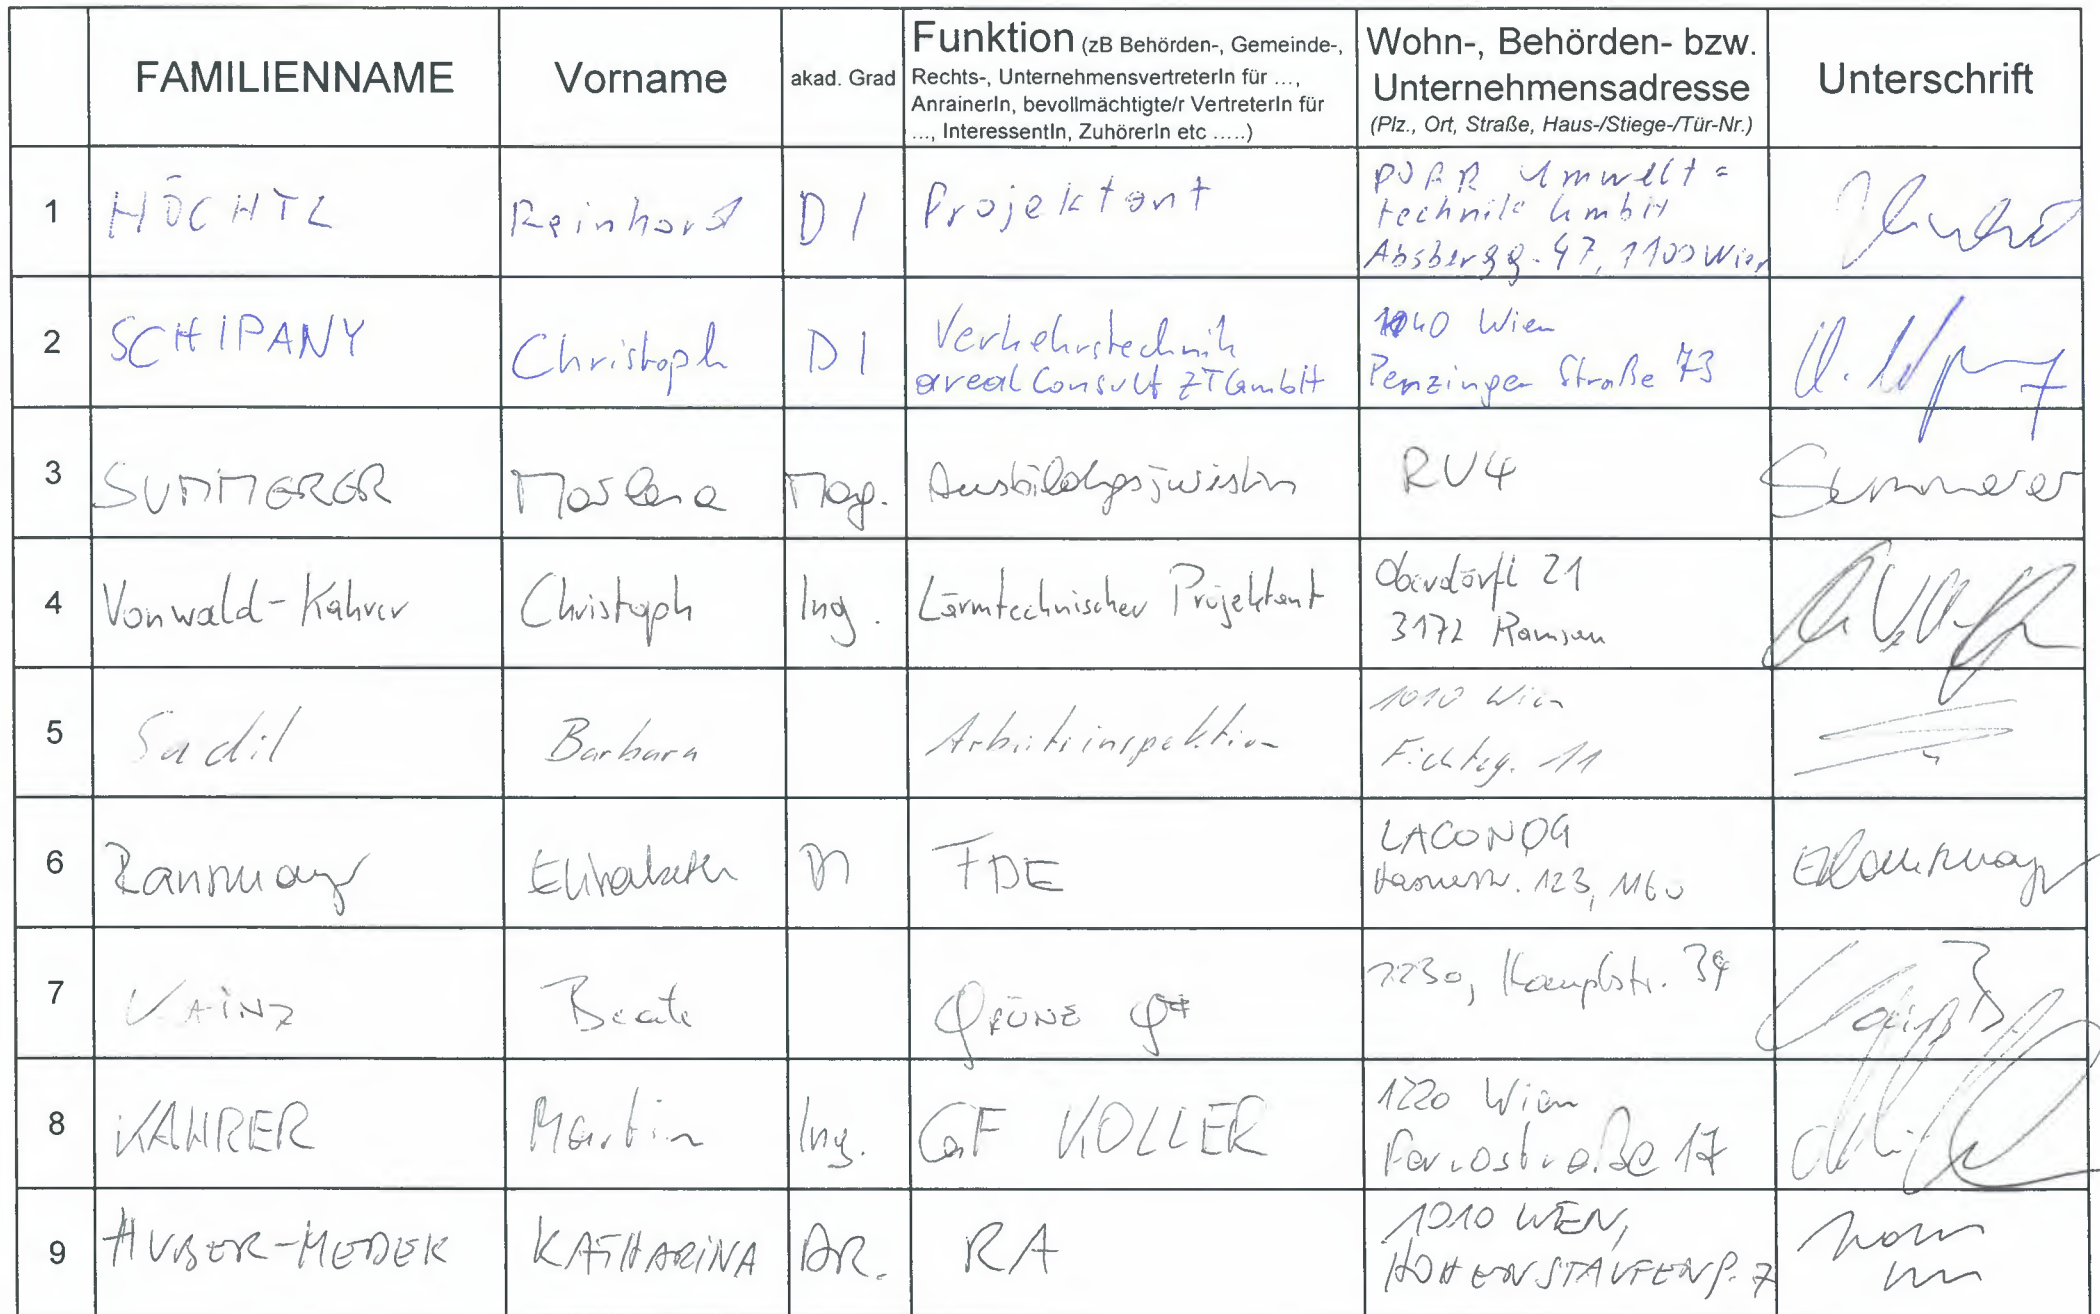 FAMILIENNAME
Vorname
akad. Grad
Funktion (zB Behörden-, Gemeinde-,
Rechts-, UnternehmensvertreterIn für ...,
AnrainerIn, bevollmächtigte/r VertreterIn für
..., InteressentIn, ZuhörerIn etc .....)
Wohn-, Behörden- bzw.
Unternehmensadresse
(Plz., Ort, Straße, Haus-/Stiege-/Tür-Nr.)
Unterschrift
1
HÖCHTL
Reinhard
DI
Projektant
Umwelt=
technik GmbH
Absbergg. 47, 1100 Wien
2
SCHIPANY
Christoph
DI
Verkehrstechnik
areal Consult ZT GmbH
1040 Wien
Penzinger Straße 73
3
SUMMERER
Marlena
Mag.
Ausbildungsjuristin
RU4
Summerer
4
Vonwald-Kahrer
Christoph
Ing.
Lärmtechnischer Projektant
Oberdörfl 21
3172 Ramsau
5
Sadil
Barbara
Arbeitsinspektion
1010 Wien
Fichteg. 11
6
Ransmayr
Elisabeth
DI
FDE
LACON OG
Hasnerstr. 123, 1160
ERansmayr
7
KAINZ
Beate
GRÜNE
1230, 39
8
KAHRER
Martin
Ing.
GF KOLLER
1220 Wien
17
9
HUBER-MEDEK
KATHARINA
DR.
RA
1010 WIEN,
HOHENSTAUFENG. 7